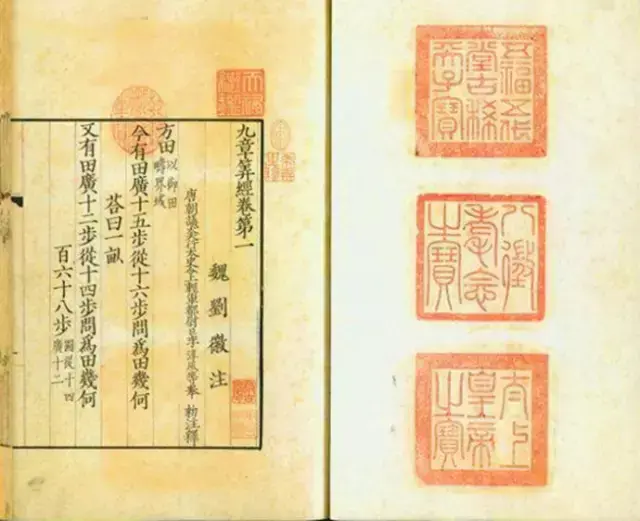 五福五代
堂古稀
天子寶
八徵
耄念
之寶
太上
皇帝
之寶
九章筭經卷第一
魏劉徽注
唐朝議大夫行太史令上輕車都尉臣李淳風等奉 勑注釋
方田以御田疇界域
今有田廣十五步從十六步問爲田幾何
荅曰一畝
又有田廣十二步從十四步問爲田幾何
百六十八步圖從十四廣十二